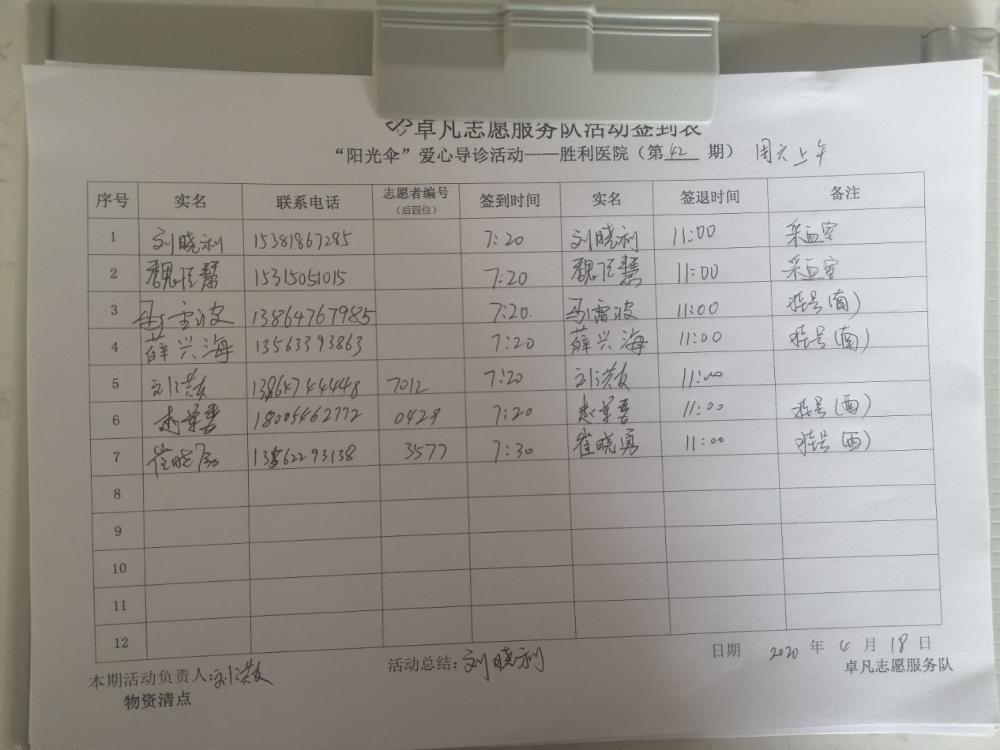 卓凡志愿服务队活动签到表
“阳光伞”爱心导诊活动——胜利医院（第 42 期） 周六上午
序号 实名 联系电话 志愿者编号（后四位） 签到时间 实名 签退时间 备注
1 刘晓利 15381867285 7:20 刘晓利 11:00 采血室
2 魏 15315051015 7:20 魏 11:00 采血室
3 马雷波 13864767985 7:20 马雷波 11:00 挂号(南)
4 薛兴海 13563393863 7:20 薛兴海 11:00 挂号(南)
5 刘洪友 13864744448 7012 7:20 刘洪友 11:00
6 赵 18005462772 0429 7:20 赵 11:00 挂号(西)
7 崔晓勇 3577 7:30 崔晓勇 11:00 挂号(西)
8
9
10
11
12
日期 2020 年 4 月 18 日
本期活动负责人:刘洪友 活动总结:刘晓利 卓凡志愿服务队
物资清点